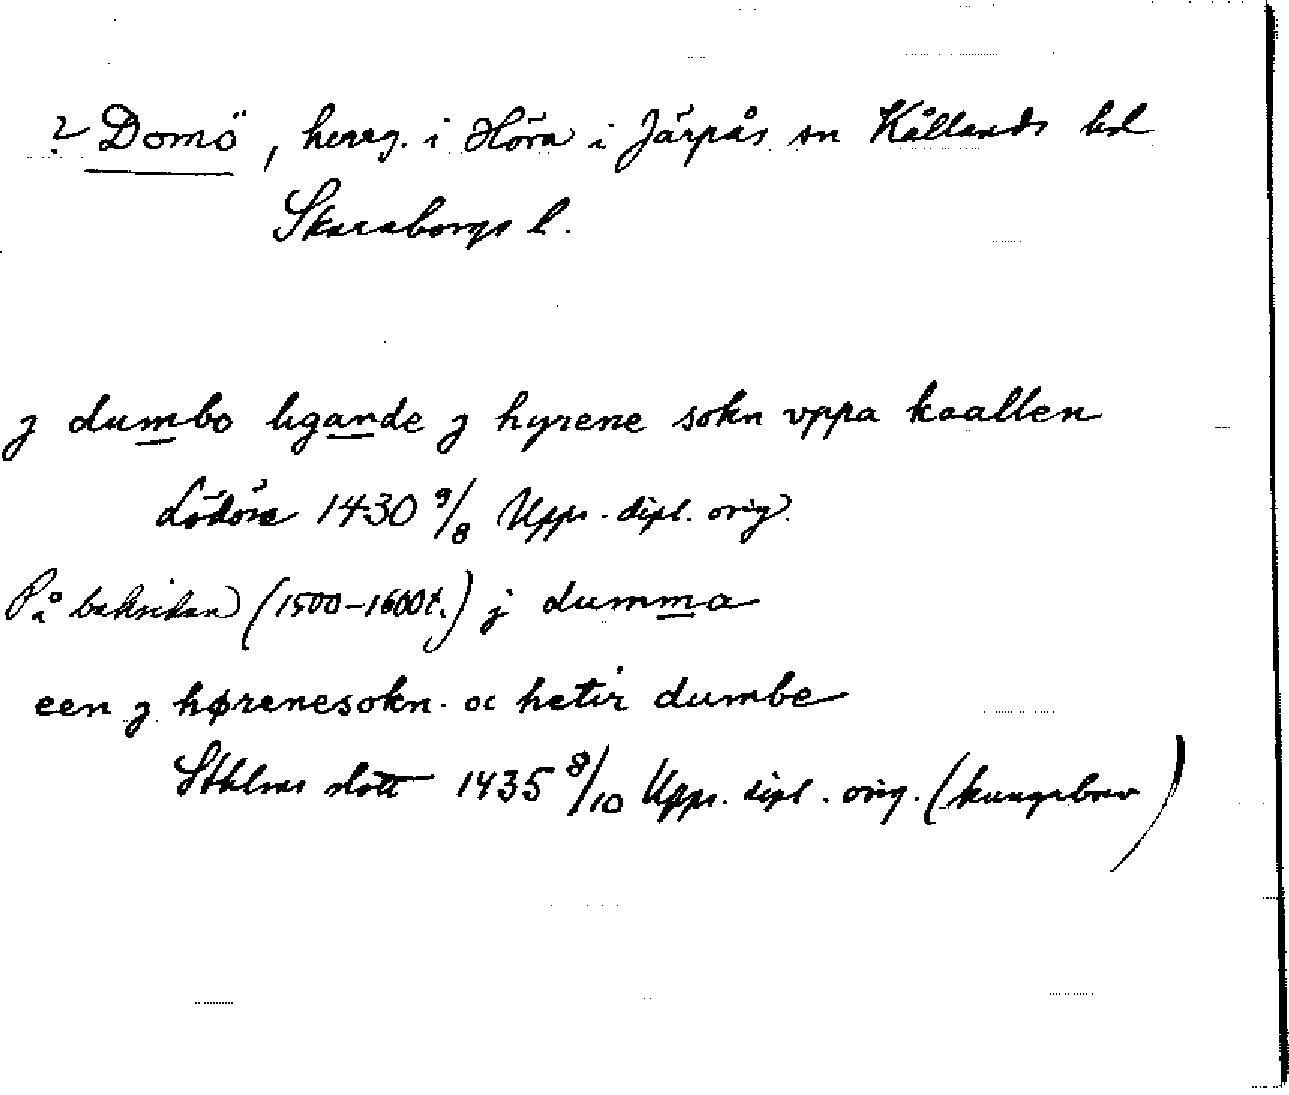 ? Domö, herrg. i Höra i Järpås sn Kållands hd
Skaraborgs l.
j dumbo ligande j hyrene sokn vppa kaallen
Lödöse 1430 9/8 Upps. dipl. orig.
På baksidan (1500-1600t.) j dumma
een j hørenesokn. oc hetir dumbe
Sthlms slott 1435 8/10 Upps. dipl. orig. (kungabrev)